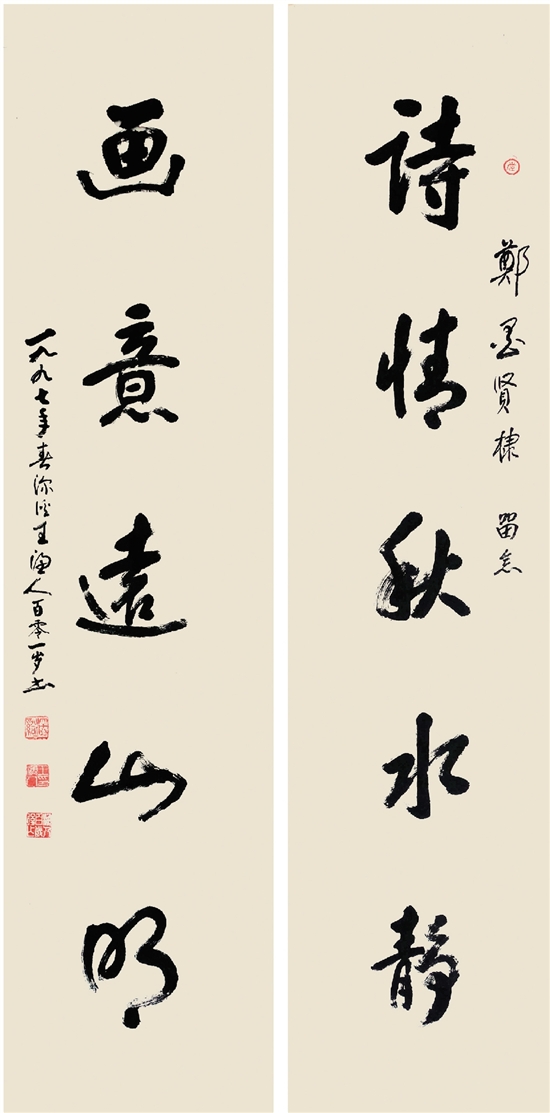 鄭墨贤棣 留念
詩情秋水静
画意遠山明
一九九七年春深溪王漁人百零一岁书